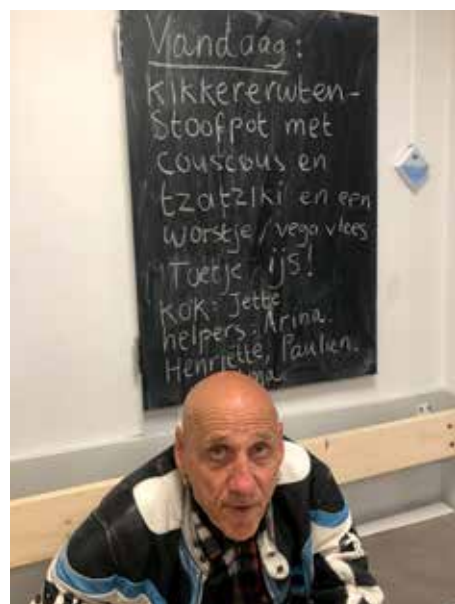 Vandaag:
kikkererwten-
Stoofpot met
couscous en
tzatziki en een
worstje/vega vlees
Toetje ijs!
kok: Jette
helpers: Arina.
Henriette, Paulien.